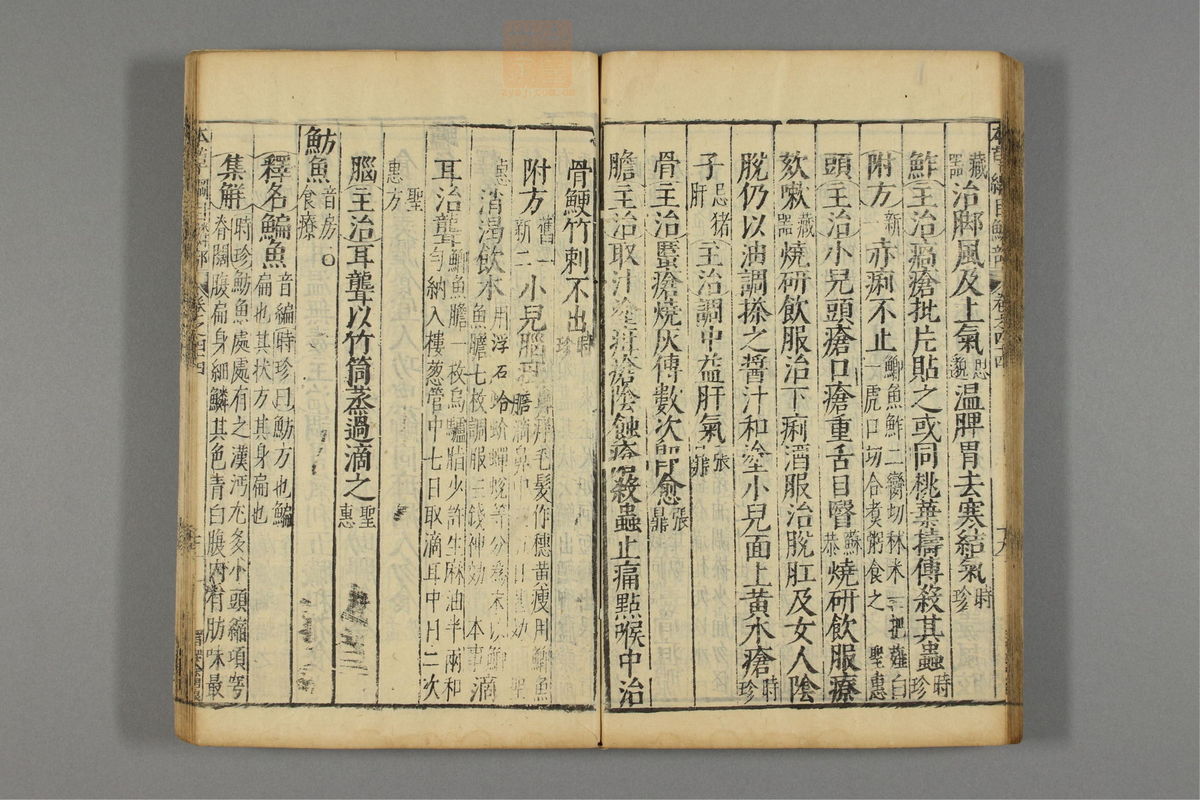 藏器治脚風及上氣思邈温脾胃去寒結氣時珍
鮓主治瘑瘡批片貼之或同桃葉擣傅殺其蟲時珍
附方新一赤痢不止鯽魚鮓二臠切秫米一把薤白一虎口切合煮粥食之聖惠
頭主治小兒頭瘡口瘡重舌目瞖蘇恭燒研飲服療
欬嗽藏器燒研飲服治下痢酒服治脫肛及女人陰
脫仍以油調搽之醬汁和塗小兒面上黄水瘡時珍
子忌猪肝主治調中益肝氣張鼎
骨主治䘌瘡燒灰傅數次即愈張鼎
膽主治取汁塗疳瘡陰蝕瘡殺蟲止痛點喉中治
骨鯁竹刺不出時珍
附方舊一新二小兒腦疳鼻痒毛髮作穗黄瘦用鯽魚膽滴鼻中
消渴飲水用浮石蛤蚧蟬蛻等分爲末以鯽魚膽七枚調服三錢神効本事滴
耳治聾鯽魚膽一枚烏驢脂少許生麻油半兩和勻納入樓葱管中七日取滴耳中日二次
聖惠方
腦主治耳聾以竹筒蒸過滴之聖惠
魴魚音房食療
釋名鯿魚音編時珍曰魴方也鯿扁也其状方其身扁也
集解時珍魴魚處處有之漢沔尤多小頭縮項穹脊闊腹扁身細鱗其色青白腹内有肪味最